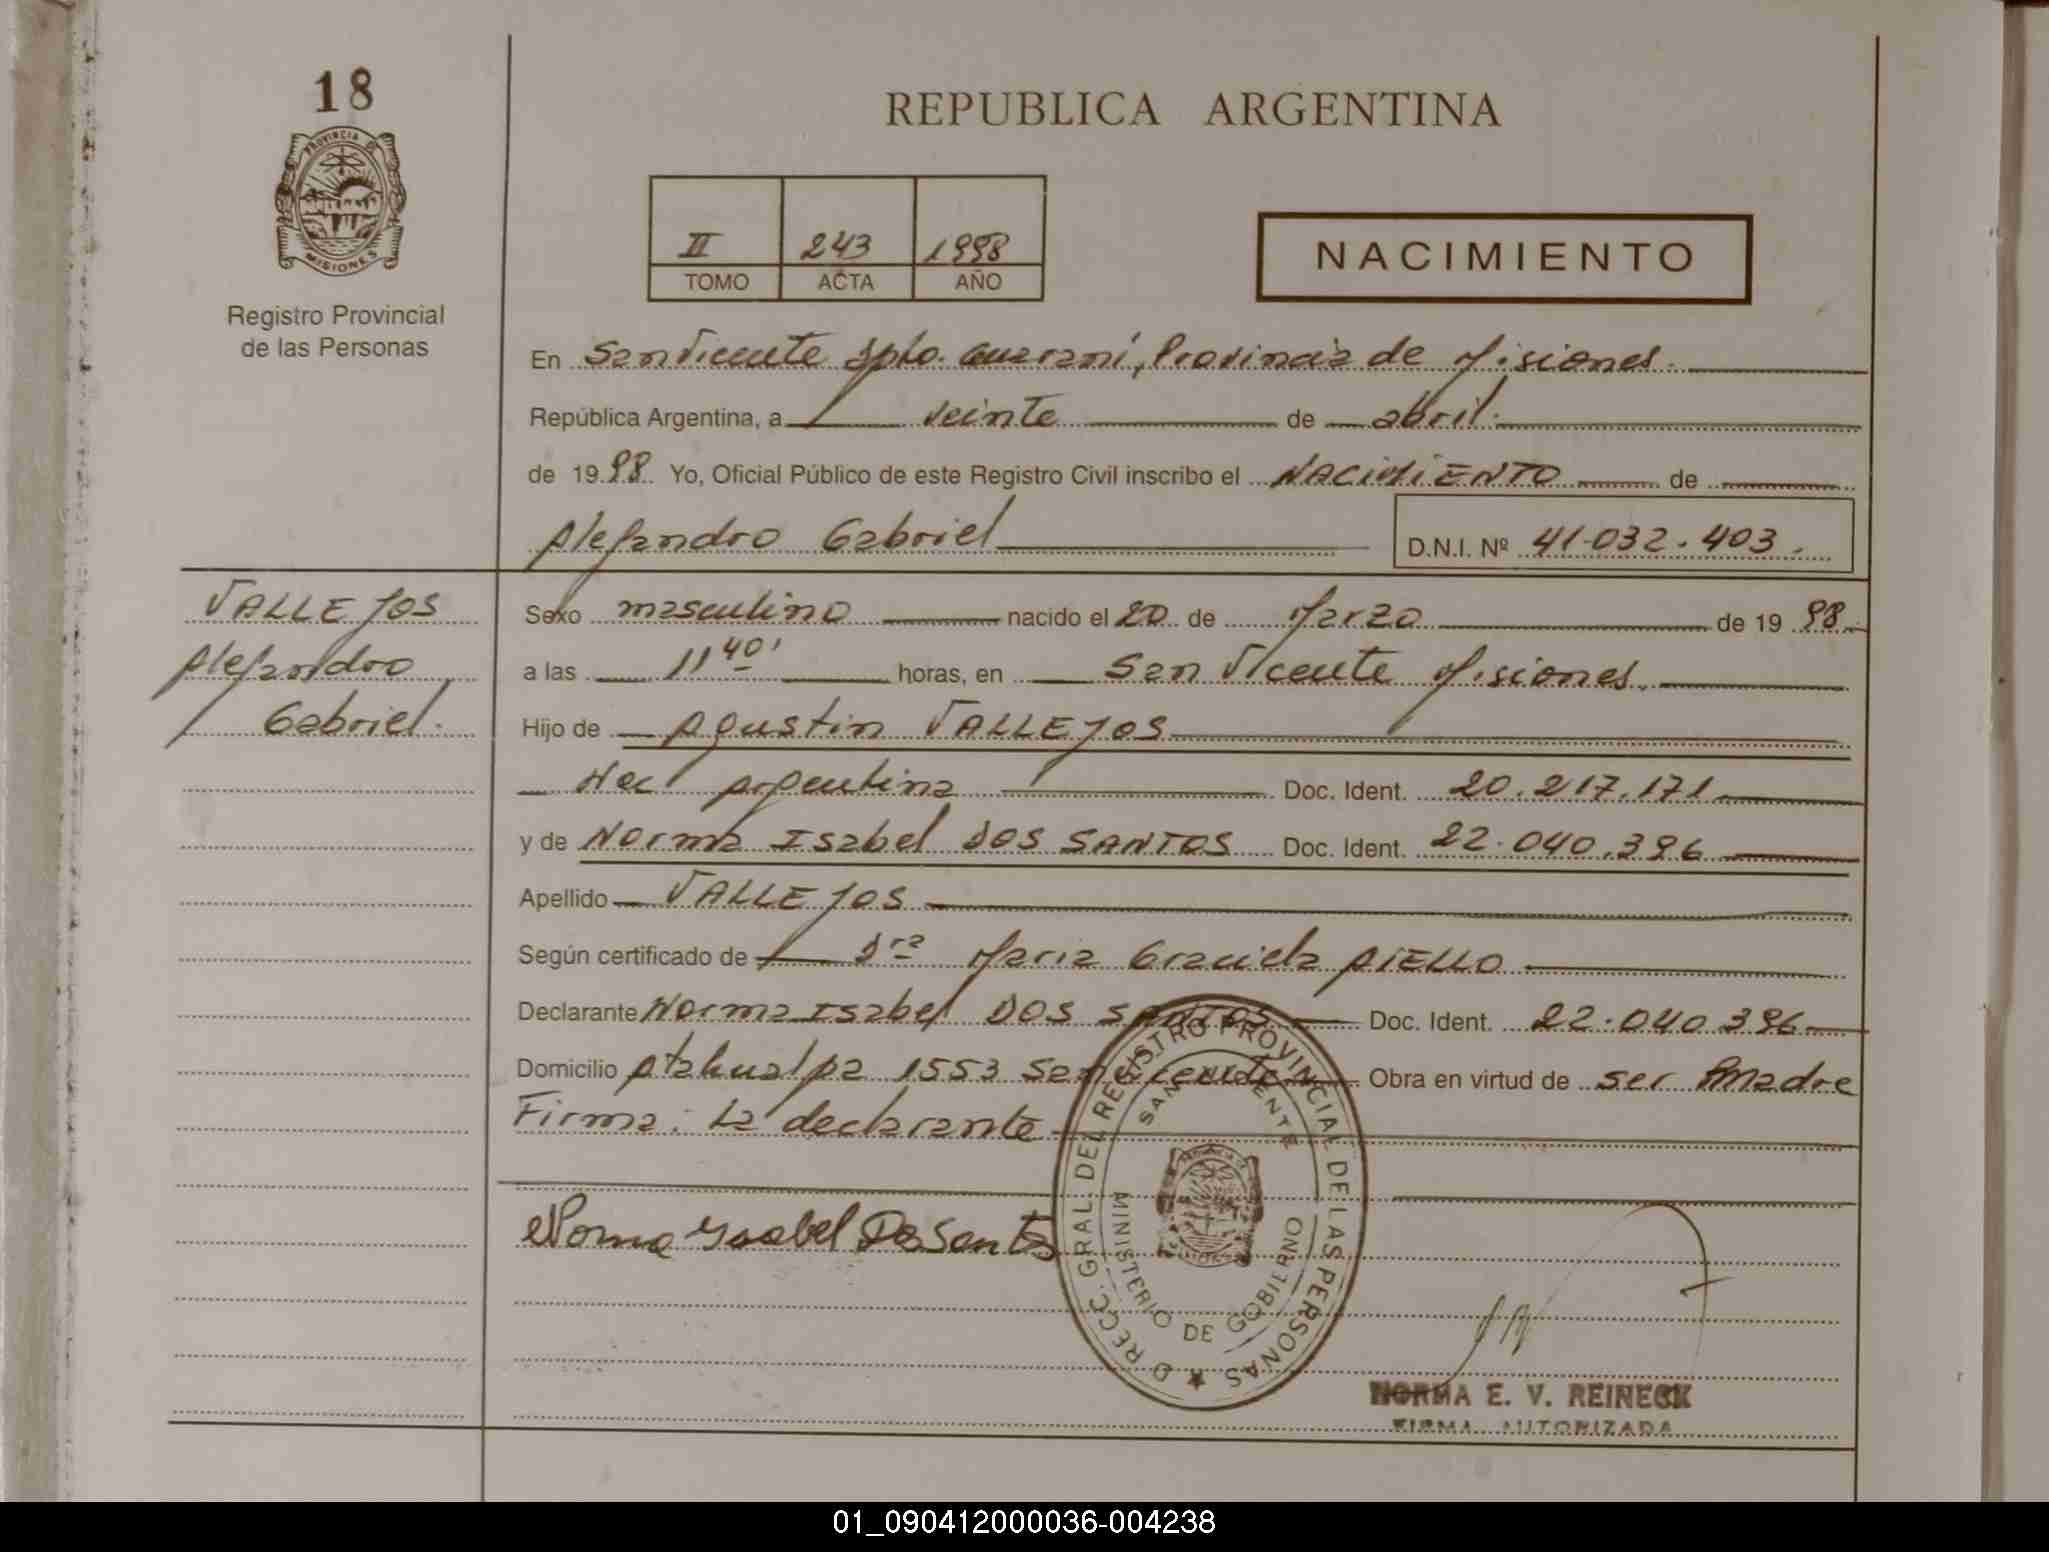 18
PROVINCIA DE
MISIONES
Registro Provincial
de las Personas
REPUBLICA ARGENTINA
II 243 1998
TOMO ACTA AÑO
NACIMIENTO
En San Vicente Dpto. Guaraní, Provincia de Misiones.
República Argentina, a veinte de abril.
de 19 98 Yo, Oficial Público de este Registro Civil inscribo el NACIMIENTO de
Alejandro Gabriel D.N.I. Nº 41.032.403.
VALLEJOS
Alejandro
Gabriel.
Sexo masculino nacido el 20 de Marzo de 19 98.
a las 11 40' horas, en San Vicente Misiones.
Hijo de Agustin VALLEJOS
Nac argentina Doc. Ident. 20.217.171
y de Norma Isabel DOS SANTOS Doc. Ident. 22.040.396
Apellido VALLEJOS
Según certificado de Dra Maria Graciela AIELLO
Declarante Norma Isabel DOS SANTOS Doc. Ident. 22.040.396
Domicilio Atahualpa 1553 San Vicente Obra en virtud de ser Madre
Firma: La declarante
Norma Ysabel Dos Santos
D RECC. GRAL. DEL REGISTRO PROVINCIAL DE LAS PERSONAS
SAN VICENTE
MINISTERIO DE GOBIERNO
NORMA E. V. REINECK
FIRMA AUTORIZADA
01_090412000036-004238